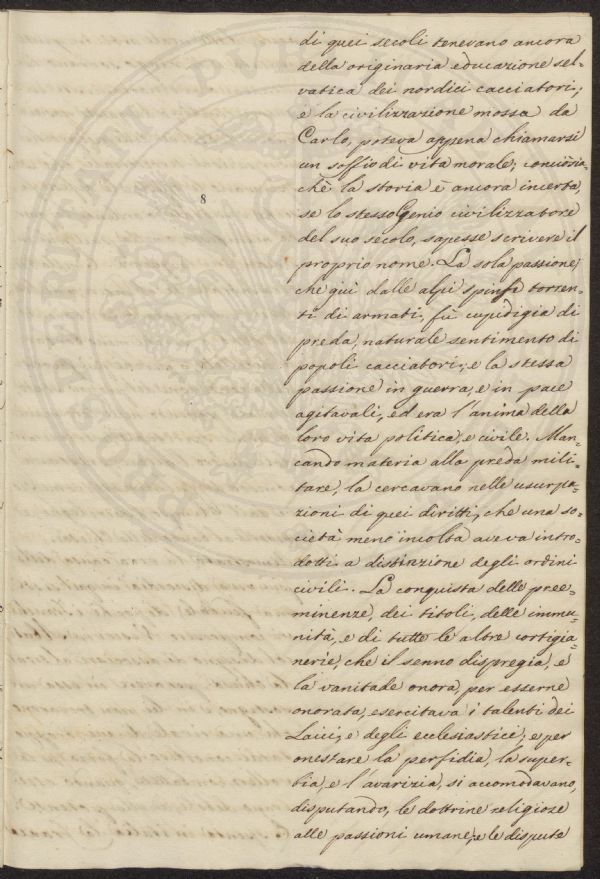 di quei secoli tenevano ancora
della originaria educazione sel-
vatica dei nordici cacciatori;
e la civilizzazione mossa da
Carlo, poteva appena chiamarsi
un soffio di vita morale; conciòsia-
chè la storia è ancora incerta,
se lo stesso Genio civilizzatore
del suo secolo, sapesse scrivere il
proprio nome. La sola passione
che quì dalle alpi spinse torren-
ti di armati, fù cupidigia di
preda, naturale sentimento di
popoli cacciatori; e la stessa
passione in guerra, e in pace
agitavali, ed era l'anima della
loro vita politica, e civile. Man-
cando materia alla preda mili-
tare, la cercavano nelle usurpa-
zioni di quei diritti, che una so-
cietà meno incolta aveva intro-
dotti a distinzione degli ordini
civili. La conquista delle pree-
minenze, dei titoli, delle immu-
nità, e di tutte le altre cortigia-
nerie, che il senno dispregia, e
la vanitade onora, per esserne
onorata, esercitava i talenti dei
Laici, e degli ecclesiastici; e per
onestare la perfidia, la super-
bia, e l'avarizia, si accomodavano,
disputando, le dottrine religiose
alle passioni umane; e le dispute
8